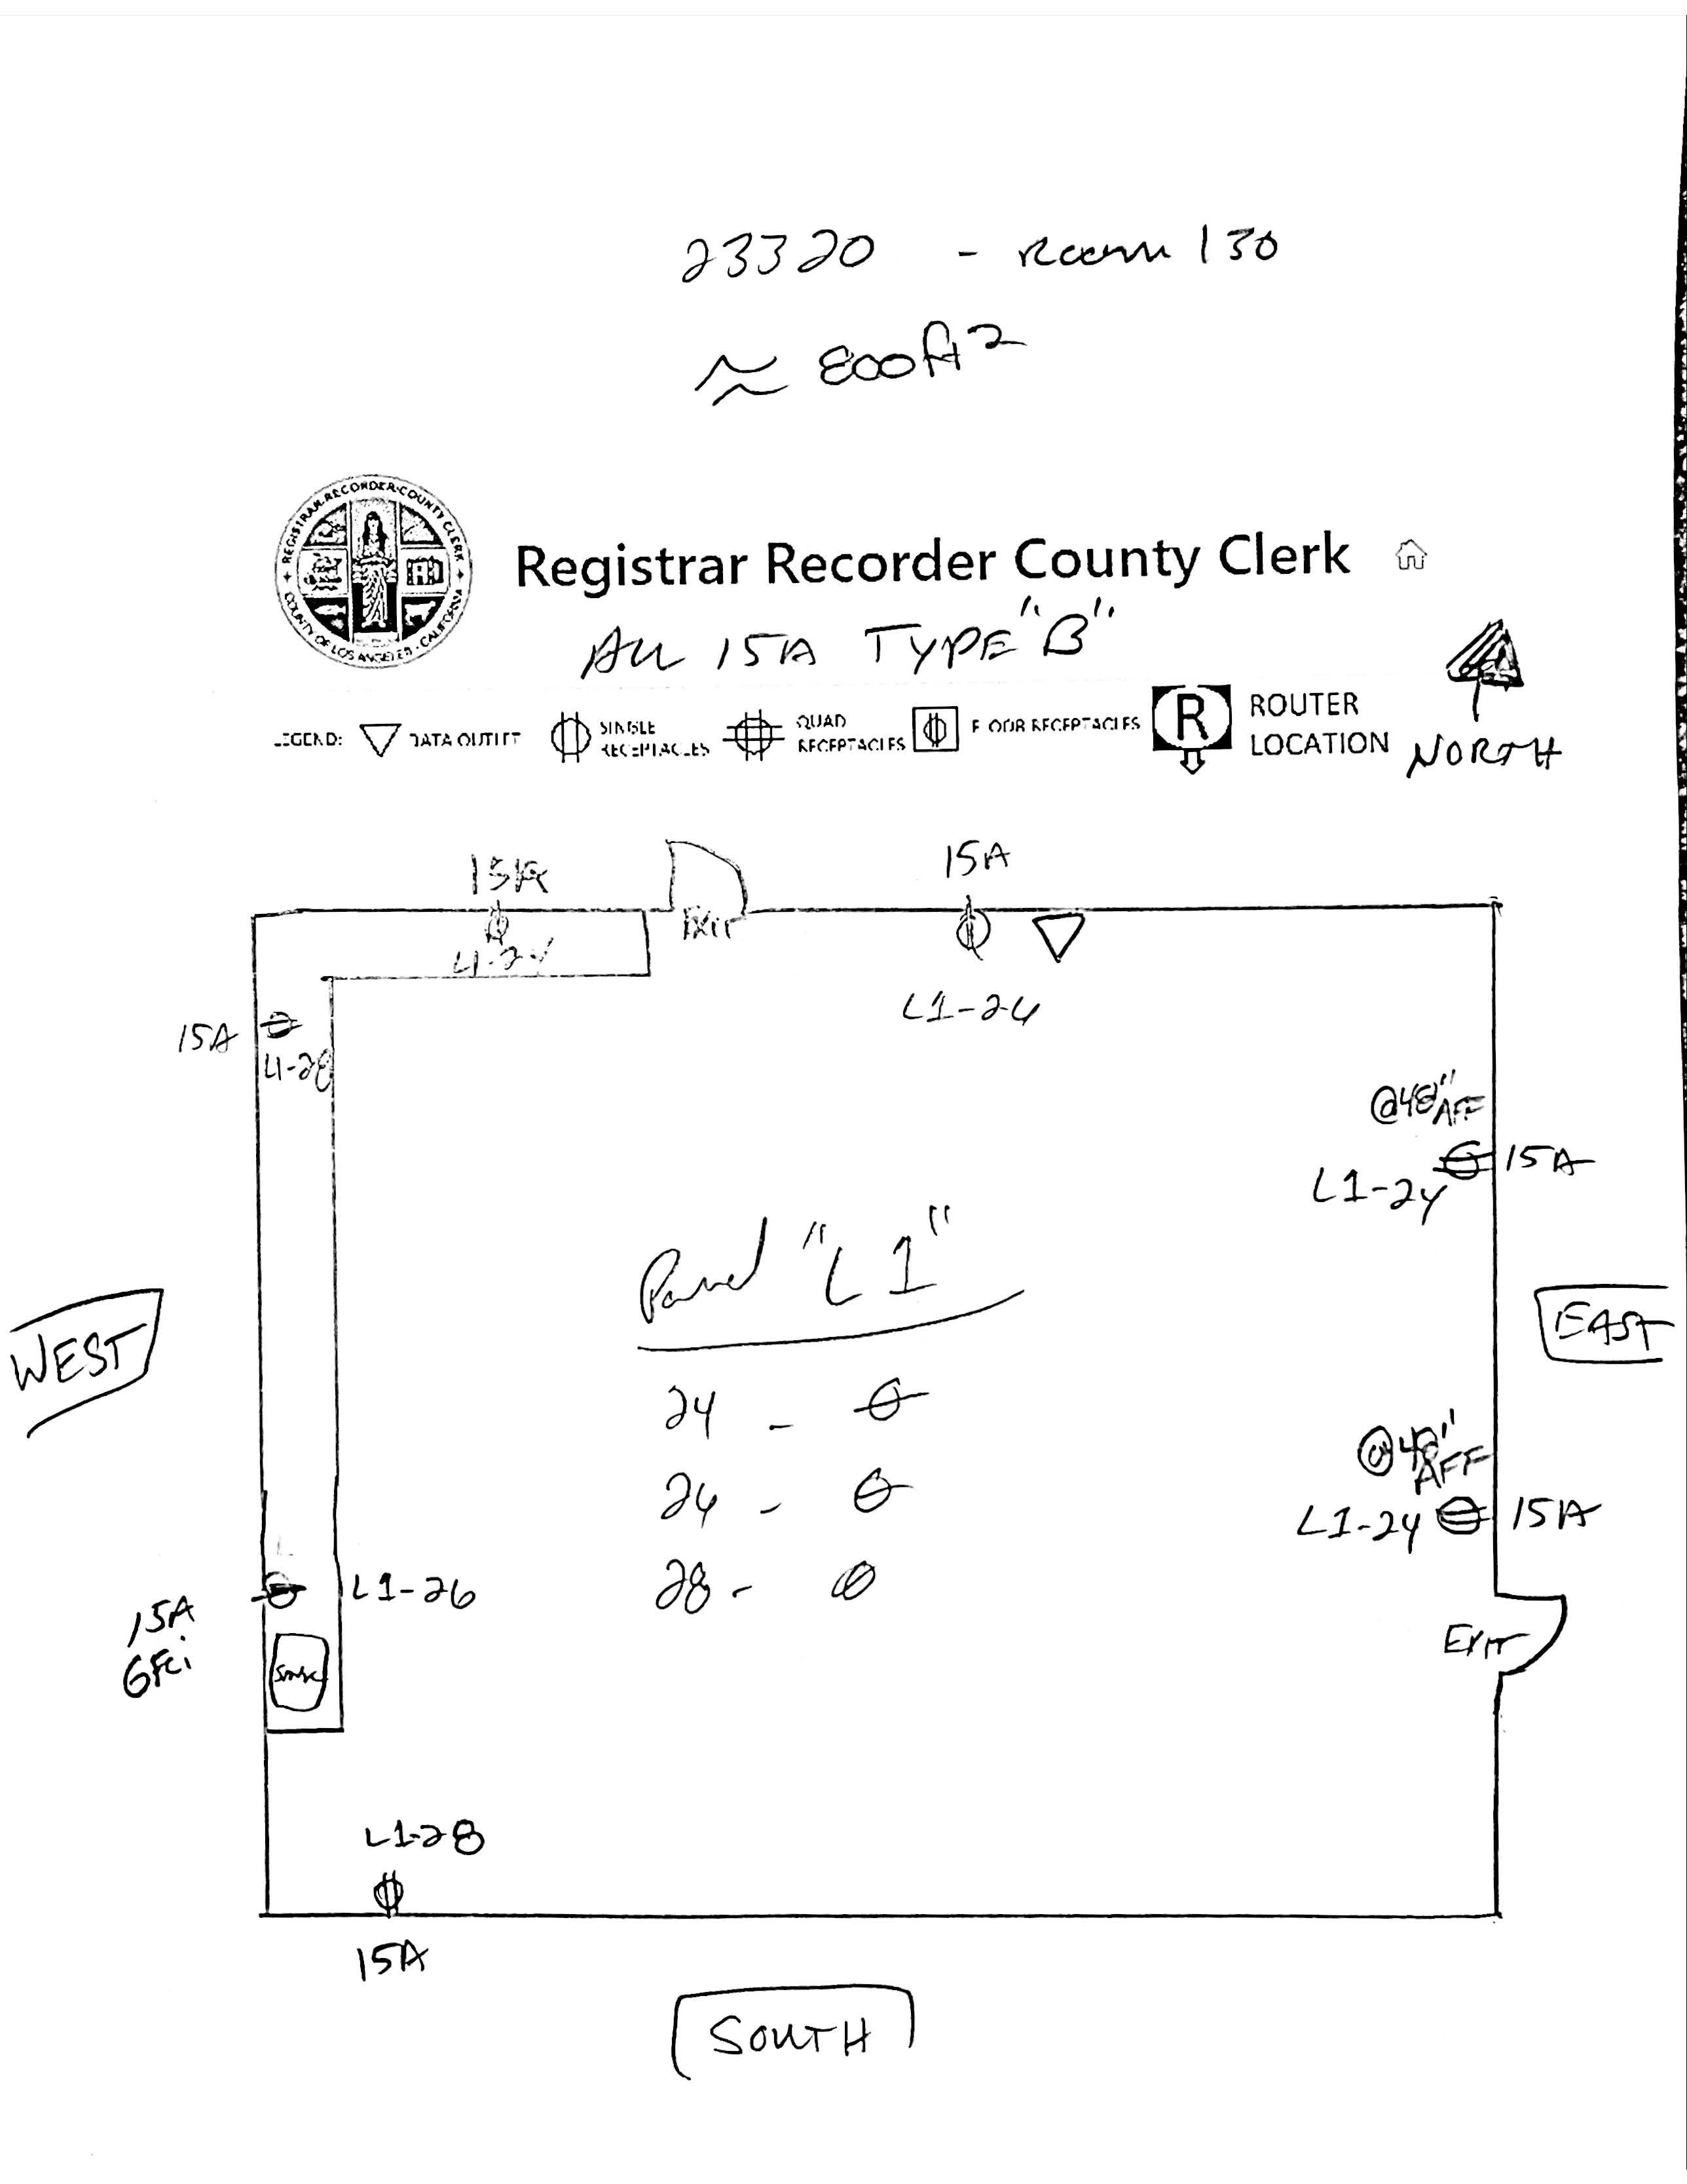 23320 - Room 130
≈ 800ft²
REGISTRAR-RECORDER COUNTY CLERK
COUNTY OF LOS ANGELES - CALIFORNIA
Registrar Recorder County Clerk
All 15A TYPE "B"
LEGEND: DATA OUTLET SINGLE RECEPTACLES QUAD RECEPTACLES FLOOR RECEPTACLES R ROUTER LOCATION
NORTH
15A
15A
EXIT
L1-24
L1-24
15A
L1-28
@48" AFF
15A
L1-24
Panel "L1"
WEST
EAST
24 -
26 -
28 -
@48" AFF
L1-24
15A
L1-26
15A
GFCi
EXIT
L1-28
15A
SOUTH